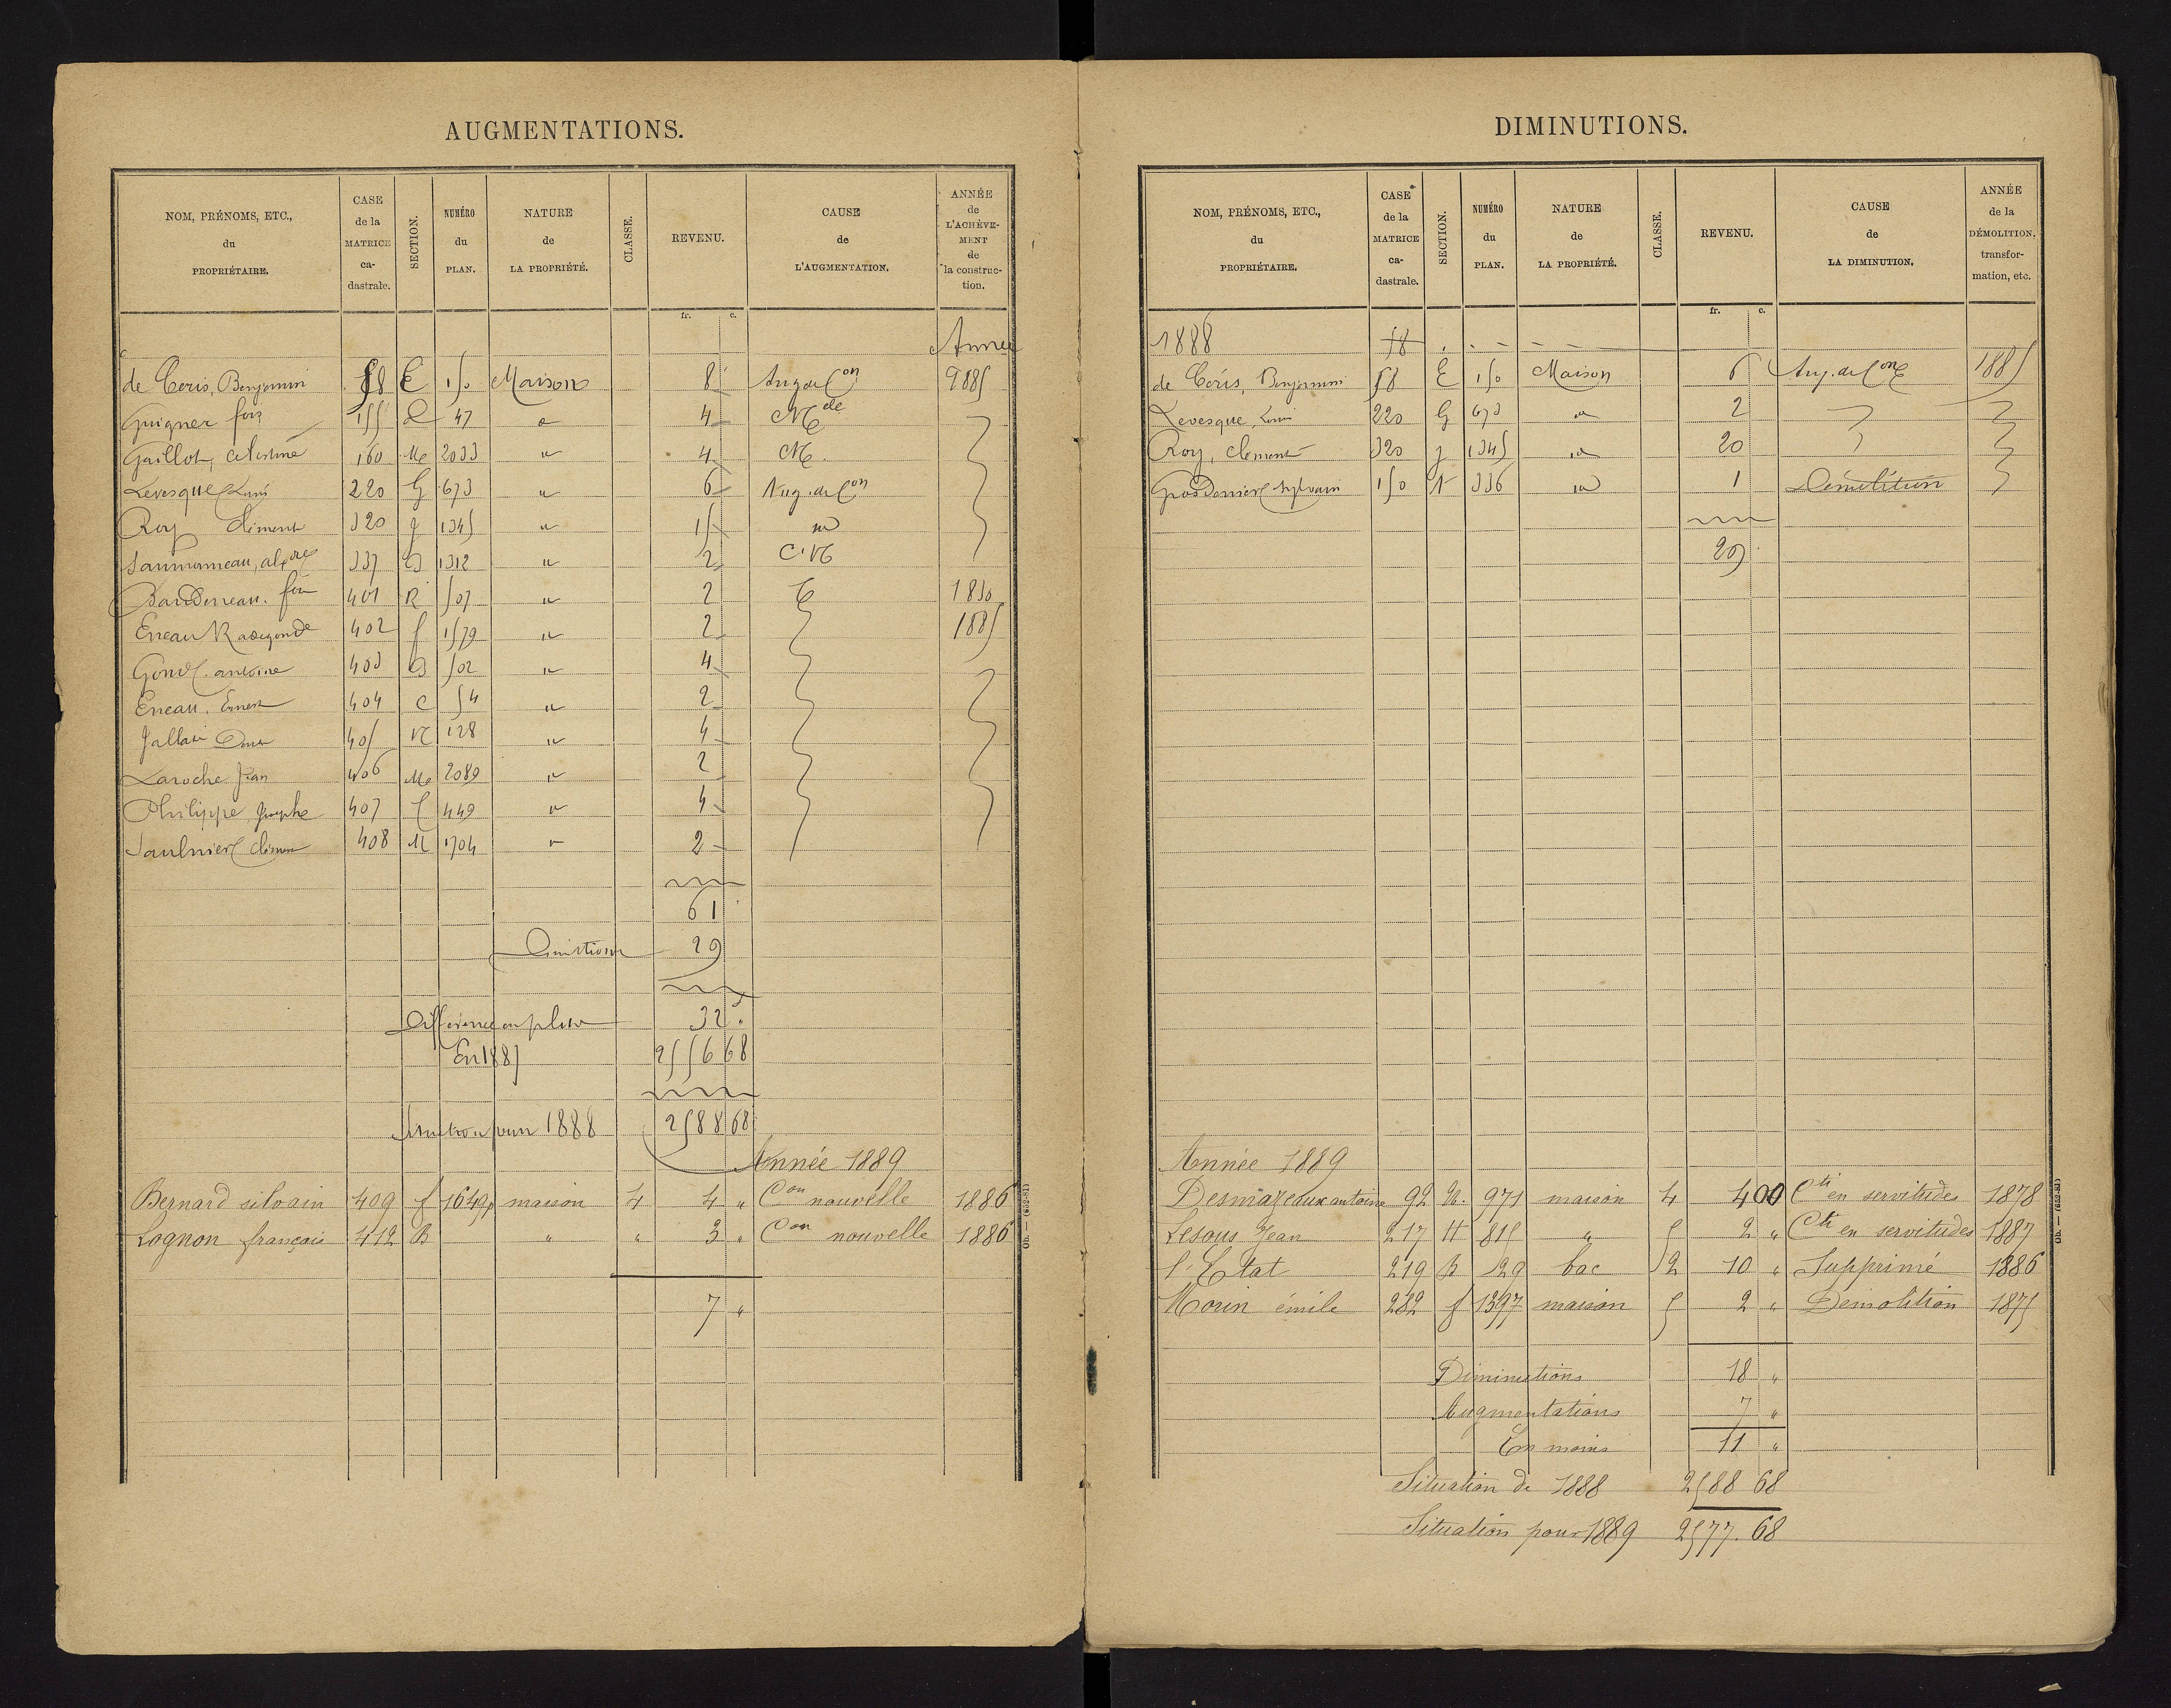 AUGMENTATIONS.
NOM, PRÉNOMS, ETC., du PROPRIÉTAIRE. CASE de la MATRICE ca-dastrale. SECTION. NUMÉRO du PLAN. NATURE de LA PROPRIÉTÉ. CLASSE. REVENU. CAUSE de L'AUGMENTATION. ANNÉE de L'ACHÈVE-MENT de la construc-tion.
fr. c.
Année
de Coris, Benjamin 58 E 150 Maison 8 Aug. de Con 1885
Guigner fois 155 47 " 4
Gaillot, Celestine 160 2033 " 4
Levesque Louis 220 G 673 " 6 Aug. de Con
Roy Clément 320 g 1345 " 15 "
337 1312 " 2
401 R 507 " 2 1850
Erreau Radegonde 402 f 1579 " 2 1885
antoine 403 502 " 4
Erreau, Ernest 404 C 54 " 2
405 128 " 4
Laroche Jean 406 2089 " 2
Philippe, Joseph 407 449 " 4
Saulnier Clément 408 M 1704 " 2
61
29
Différence en plus 32 "
En 1887 2556 68
Situation pour 1888 2588 68
Année 1889
Bernard silvain 409 f 1649p maison 4 4 " Con nouvelle 1886
Lognon français 412 B " " 3 " Con nouvelle 1886
7 "
Ob. — (652-81)
DIMINUTIONS.
NOM, PRÉNOMS, ETC., du PROPRIÉTAIRE. CASE de la MATRICE ca-dastrale. SECTION. NUMÉRO du PLAN. NATURE de LA PROPRIÉTÉ. CLASSE. REVENU. CAUSE de LA DIMINUTION. ANNÉE de la DÉMOLITION, transfor-mation, etc.
fr. c.
1888 58
de Coris, Benjamin 58 E 150 Maison 6 Aug. de Con 1885
Levesque, Louis 220 G 673 " 2
Roy, Clément 320 g 1345 " 20
Grosdenier Sylvain 150 336 " 1 Démolition
29
Année 1889
Desmazeaux antoine 92 971 maison 4 4 00 Cti en servitudes 1878
Lesous Jean 217 H 815 " 5 2 " Cti en servitudes 1887
l'Etat 219 B 29 bac 2 10 " Supprimé 1886
Morin émile 282 f 1397 maison 5 2 " Démolition 1875
Diminutions 18 "
Augmentations 7 "
En moins 11 "
Situation de 1888 2588 68
Situation pour 1889 2577. 68
Ob. — (652-81)